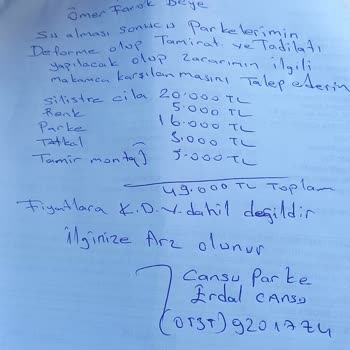 Ömer Faruk Beye
Su alması sonucu Parkelerimin
Deforme olup Tamirat ve Tadilatı
yapılacak olup zararımın ilgili
makamca karşılanmasını Talep ederim
silistre cila 20.000 TL
Renk 5.000 TL
Parke 16.000 TL
Tutkal 3.000 TL
Tamir montaj 5.000 TL
49.000 TL Toplam
Fiyatlara K.D.V. dahil değildir
ilginize Arz olunur
Cansu Parke
Erdal CANSU
(0757) 9201774